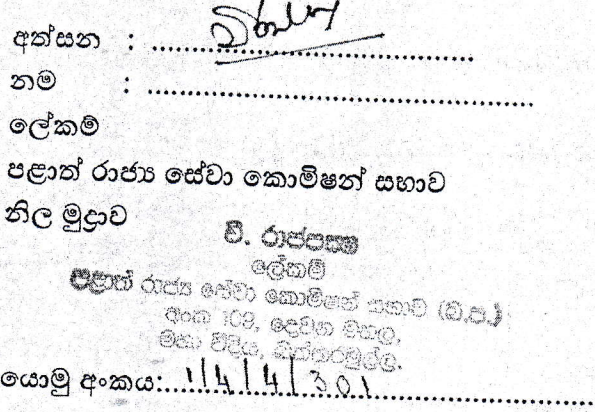 අත්සන : ........................................
නම : ................................................
ලේකම්
පළාත් රාජ්‍ය සේවා කොමිෂන් සභාව
නිල මුද්‍රාව
වී. රාජපක්ෂ
ලේකම්
පළාත් රාජ්‍ය සේවා කොමිෂන් සභාව (බ.ප.)
අංක 109, දෙවන මහල,
මහා වීදිය, බත්තරමුල්ල.
යොමු අංකය:..1/4/4/301..............................